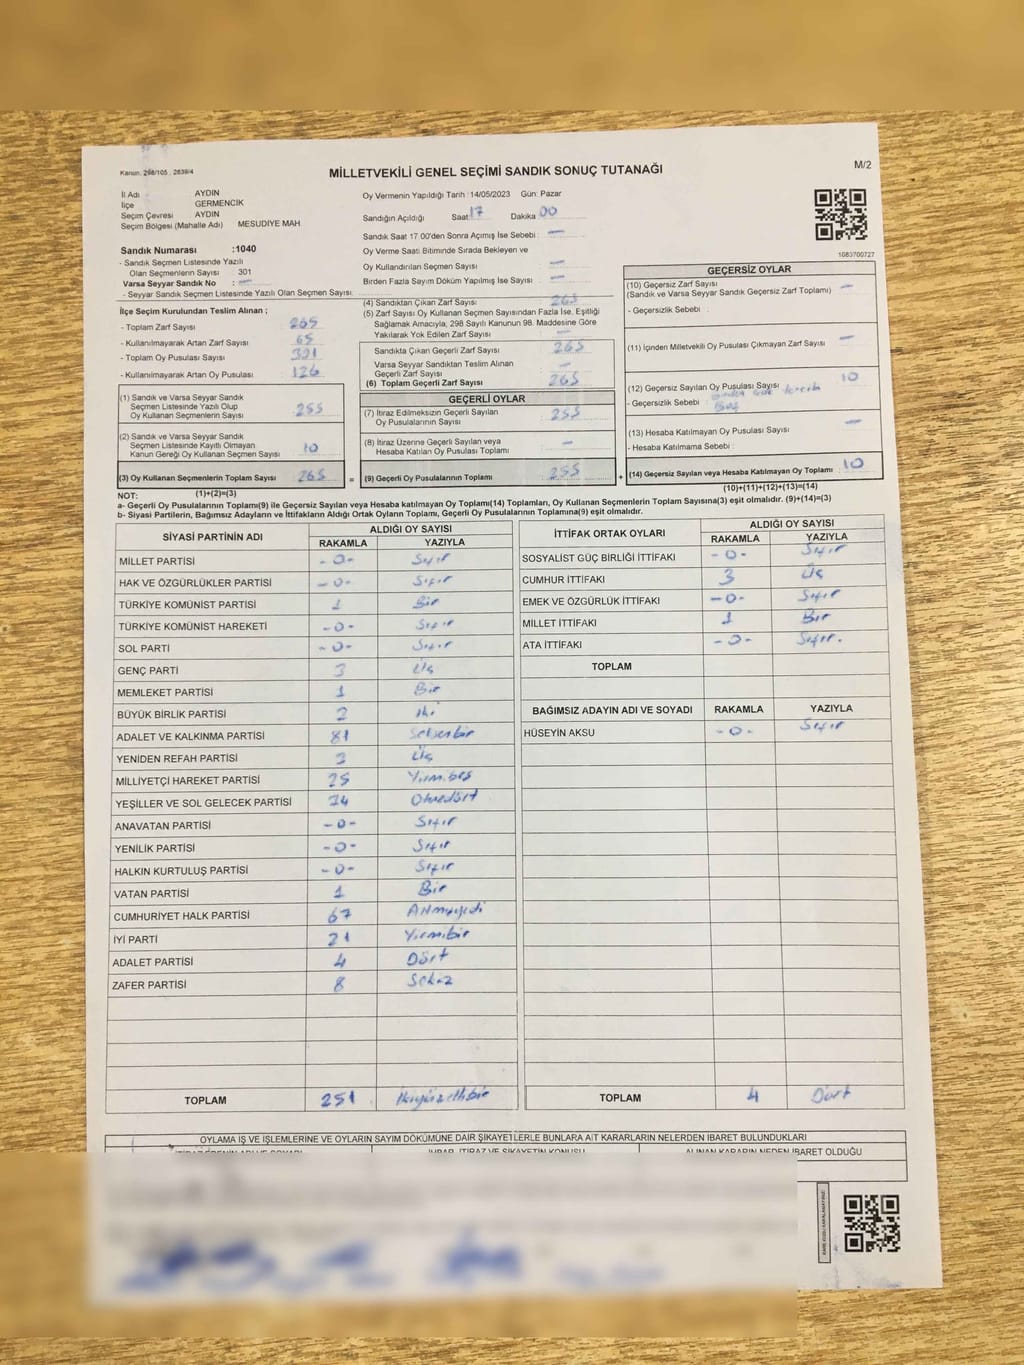 Kanun, 298/105 , 2839/4
MİLLETVEKİLİ GENEL SEÇİMİ SANDIK SONUÇ TUTANAĞI
M/2
İl Adı AYDIN
İlçe GERMENCIK
Seçim Çevresi AYDIN
Seçim Bölgesi (Mahalle Adı) MESUDİYE MAH
Sandık Numarası :1040
- Sandık Seçmen Listesinde Yazılı
Olan Seçmenlerin Sayısı : 301
Varsa Seyyar Sandık No : —
- Seyyar Sandık Seçmen Listesinde Yazılı Olan Seçmen Sayısı:
Oy Vermenin Yapıldığı Tarih :14/05/2023 Gün: Pazar
Sandığın Açıldığı Saat 17 Dakika 00
Sandık Saat 17.00'den Sonra Açımış İse Sebebi : —
Oy Verme Saati Bitiminde Sırada Bekleyen ve
Oy Kullandırılan Seçmen Sayısı —
Birden Fazla Sayım Döküm Yapılmış İse Sayısı : —
1083700727
İlçe Seçim Kurulundan Teslim Alınan ;
- Toplam Zarf Sayısı : 265
- Kullanılmayarak Artan Zarf Sayısı : 65
- Toplam Oy Pusulası Sayısı : 391
- Kullanılmayarak Artan Oy Pusulası : 126
(1) Sandık ve Varsa Seyyar Sandık
Seçmen Listesinde Yazılı Olup
Oy Kullanan Seçmenlerin Sayısı : 255
(2) Sandık ve Varsa Seyyar Sandık
Seçmen Listesinde Kayıtlı Olmayan
Kanun Gereği Oy Kullanan Seçmen Sayısı : 10
(3) Oy Kullanan Seçmenlerin Toplam Sayısı : 265
(1)+(2)=(3)
(4) Sandıktan Çıkan Zarf Sayısı : 265
(5) Zarf Sayısı Oy Kullanan Seçmen Sayısından Fazla İse, Eşitliği
Sağlamak Amacıyla, 298 Sayılı Kanunun 98. Maddesine Göre
Yakılarak Yok Edilen Zarf Sayısı : —
Sandıkta Çıkan Geçerli Zarf Sayısı : 265
Varsa Seyyar Sandıktan Teslim Alınan
Geçerli Zarf Sayısı : —
(6) Toplam Geçerli Zarf Sayısı : 265
GEÇERLİ OYLAR
(7) İtiraz Edilmeksizin Geçerli Sayılan
Oy Pusulalarının Sayısı : 255
(8) İtiraz Üzerine Geçerli Sayılan veya
Hesaba Katılan Oy Pusulası Toplamı : —
= (9) Geçerli Oy Pusulalarının Toplamı : 255
GEÇERSİZ OYLAR
(10) Geçersiz Zarf Sayısı : —
(Sandık ve Varsa Seyyar Sandık Geçersiz Zarf Toplamı)
- Geçersizlik Sebebi :
(11) İçinden Milletvekili Oy Pusulası Çıkmayan Zarf Sayısı : —
(12) Geçersiz Sayılan Oy Pusulası Sayısı : 10
- Geçersizlik Sebebi :
(13) Hesaba Katılmayan Oy Pusulası Sayısı : —
- Hesaba Katılmama Sebebi :
+ (14) Geçersiz Sayılan veya Hesaba Katılmayan Oy Toplamı : 10
(10)+(11)+(12)+(13)=(14)
NOT:
a- Geçerli Oy Pusulalarının Toplamı(9) ile Geçersiz Sayılan veya Hesaba katılmayan Oy Toplamı(14) Toplamları, Oy Kullanan Seçmenlerin Toplam Sayısına(3) eşit olmalıdır. (9)+(14)=(3)
b- Siyasi Partilerin, Bağımsız Adayların ve İttifakların Aldığı Ortak Oyların Toplamı, Geçerli Oy Pusulalarının Toplamına(9) eşit olmalıdır.
SİYASİ PARTİNİN ADI ALDIĞI OY SAYISI
RAKAMLA YAZIYLA
MİLLET PARTİSİ -0- Sıfır
HAK VE ÖZGÜRLÜKLER PARTİSİ -0- Sıfır
TÜRKİYE KOMÜNİST PARTİSİ 1 Bir
TÜRKİYE KOMÜNİST HAREKETİ -0- Sıfır
SOL PARTİ -0- Sıfır
GENÇ PARTİ 3 Üç
MEMLEKET PARTİSİ 1 Bir
BÜYÜK BİRLİK PARTİSİ 2 iki
ADALET VE KALKINMA PARTİSİ 81 Seksenbir
YENİDEN REFAH PARTİSİ 3 Üç
MİLLİYETÇİ HAREKET PARTİSİ 25 Yirmibeş
YEŞİLLER VE SOL GELECEK PARTİSİ 34 Otuzdört
ANAVATAN PARTİSİ -0- Sıfır
YENİLİK PARTİSİ -0- Sıfır
HALKIN KURTULUŞ PARTİSİ -0- Sıfır
VATAN PARTİSİ 1 Bir
CUMHURİYET HALK PARTİSİ 67 Altmışyedi
İYİ PARTİ 21 Yirmibir
ADALET PARTİSİ 4 Dört
ZAFER PARTİSİ 8 Sekiz
TOPLAM 251 İkiyüzellibir
İTTİFAK ORTAK OYLARI ALDIĞI OY SAYISI
RAKAMLA YAZIYLA
SOSYALİST GÜÇ BİRLİĞİ İTTİFAKI -0- Sıfır
CUMHUR İTTİFAKI 3 Üç
EMEK VE ÖZGÜRLÜK İTTİFAKI -0- Sıfır
MİLLET İTTİFAKI 1 Bir
ATA İTTİFAKI -0- Sıfır.
TOPLAM
BAĞIMSIZ ADAYIN ADI VE SOYADI RAKAMLA YAZIYLA
HÜSEYİN AKSU -0- Sıfır
TOPLAM 4 Dört
OYLAMA İŞ VE İŞLEMLERİNE VE OYLARIN SAYIM DÖKÜMÜNE DAİR ŞİKAYETLERLE BUNLARA AİT KARARLARIN NELERDEN İBARET BULUNDUKLARI
İHBAR, İTİRAZ VE ŞİKAYETİN KONUSU
ALINAN KARARIN NEDEN İBARET OLDUĞU